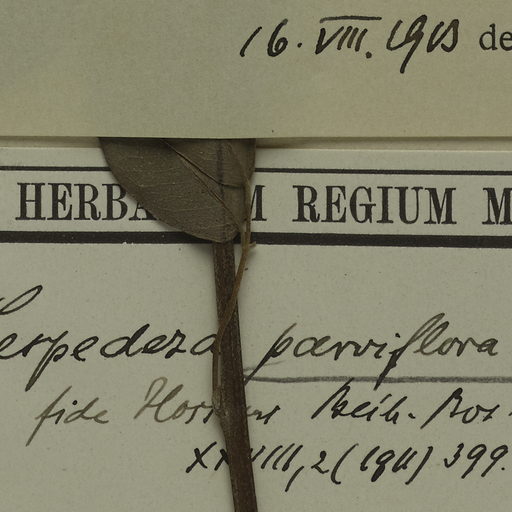 16. VIII. 1913 de
HERBARIUM REGIUM M
Lespedeza parviflora
fide Hosseus Beih. Bot.
XXVIII, 2 (1911) 399.